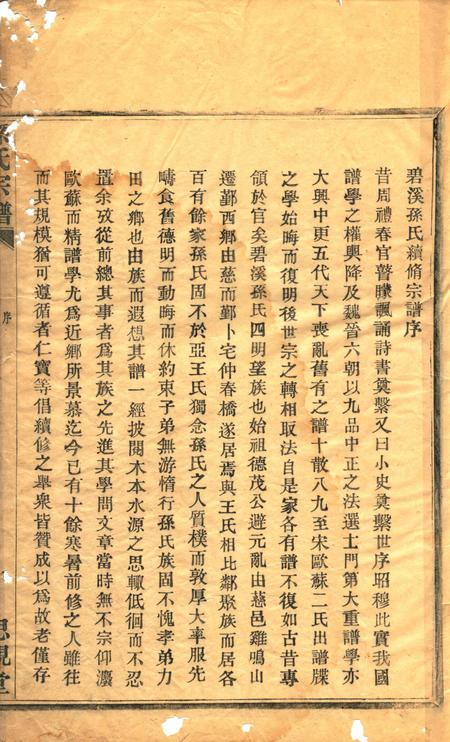 碧溪孫氏續修宗譜序
昔周禮春官瞽矇諷誦詩書奠繫又曰小史奠繫世序昭穆此實我國
譜學之權輿降及魏晉六朝以九品中正之法選士門第大重譜學亦
大興中更五代天下喪亂舊有之譜十散八九至宋歐蘇二氏出譜牒
之學始晦而復明後世宗之轉相取法自是家各有譜不復如古昔專
領於官矣碧溪孫氏四明望族也始祖德茂公避元亂由慈邑雞鳴山
遷鄞西鄉由慈而鄞卜宅仲春橋遂居焉與王氏相比鄰聚族而居各
百有餘家孫氏固不於亞王氏獨念孫氏之人質樸而敦厚大率服先
疇食舊德明而動晦而休約束子弟無游惰行孫氏族固不愧孝弟力
田之鄉也由族而遐想其譜一經披閱木本水源之思輒低徊而不忍
置余攷從前總其事者為其族之先進其學問文章當時無不宗仰瀼
歐蘇而精譜學尤為近鄉所景慕迄今已有十餘寒暑前修之人雖往
而其規模猶可遵循者仁寶等倡續修之舉衆皆贊成以為故老僅存
氏宗譜
序
思覲堂